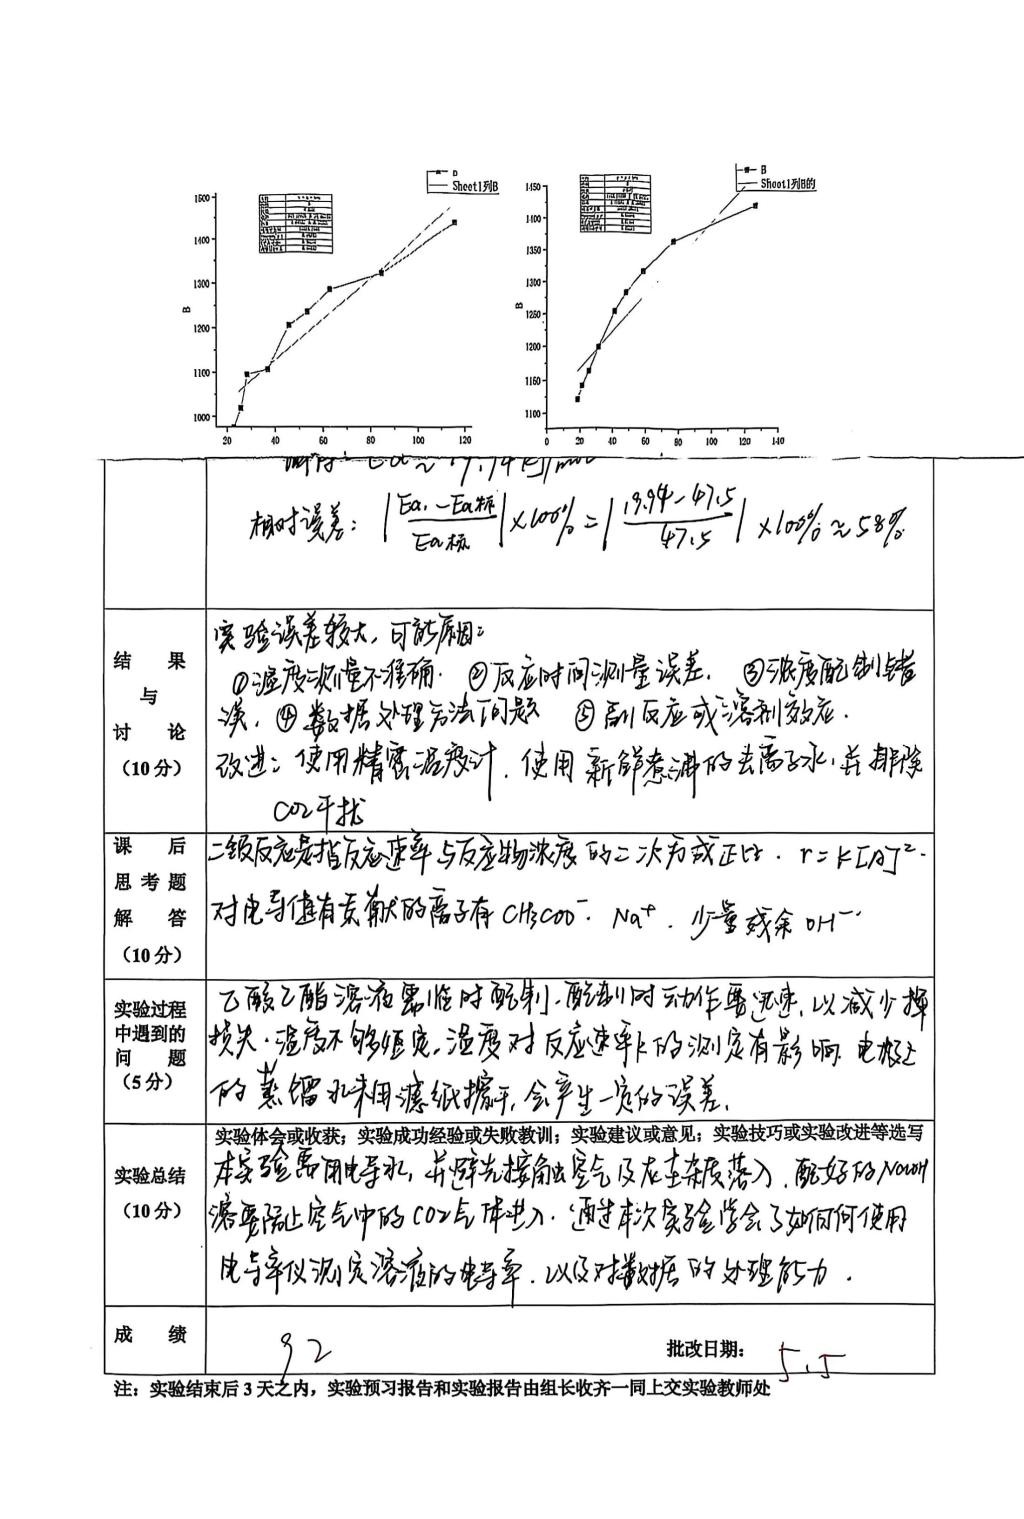 B
Sheet1列B
1500
1400
1300
1200
1100
1000
B
20 40 60 80 100 120
B
Sheet1列B的
1450
1400
1350
1300
1250
1200
1150
1100
B
0 20 40 60 80 100 120 140
相对误差: |Ea₁-Ea标 / Ea标|×100% = |19.94-47.5 / 47.5|×100%≈58%
结果与讨论(10分)
实验误差较大, 可能原因:
①温度测量不准确. ②反应时间测量误差. ③浓度配制错
误. ④数据处理方法问题 ⑤副反应或溶剂效应.
改进: 使用精密温度计. 使用新鲜煮沸的去离子水, 并排除
CO2干扰
课后思考题解答(10分)
二级反应是指反应速率与反应物浓度的二次方成正比. r=k[A]².
对电导值有贡献的离子有CH3COO⁻. Na⁺. 少量残余OH⁻.
实验过程中遇到的问题(5分)
乙酸乙酯溶液需临时配制. 配制时动作要迅速, 以减少挥
损失. 温度不够恒定, 温度对反应速率k的测定有影响. 电极上
的蒸馏水未用滤纸擦干, 会产生一定的误差.
实验总结(10分)
实验体会或收获;实验成功经验或失败教训;实验建议或意见;实验技巧或实验改进等选写
本实验需用电导水, 并避免接触空气及灰尘杂质落入. 配好的NaOH
溶要阻止空气中的CO2气体进入. 通过本次实验学会了如何何使用
电导率仪测定溶液的电导率. 以及对数据的处理能力.
成绩 92 批改日期: 5.5
注:实验结束后3天之内,实验预习报告和实验报告由组长收齐一同上交实验教师处